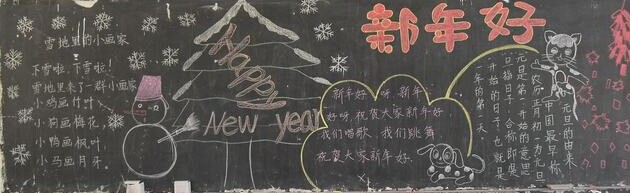 雪地里的小画家
下雪啦,下雪啦!
雪地里来了一群小画家
小鸡画竹叶,
小狗画梅花,
小鸭画枫叶,
小马画月牙。
Happy
New year
新年好
新年好呀,新年
好呀,祝贺大家新年好
我们唱歌,我们跳舞
祝贺大家新年好.
元旦的由来
中国最早称
农历正月初一为元旦
元是第一开始的意思
旦指日子,合称即是
一开始的日子,也就是
一年的第一天